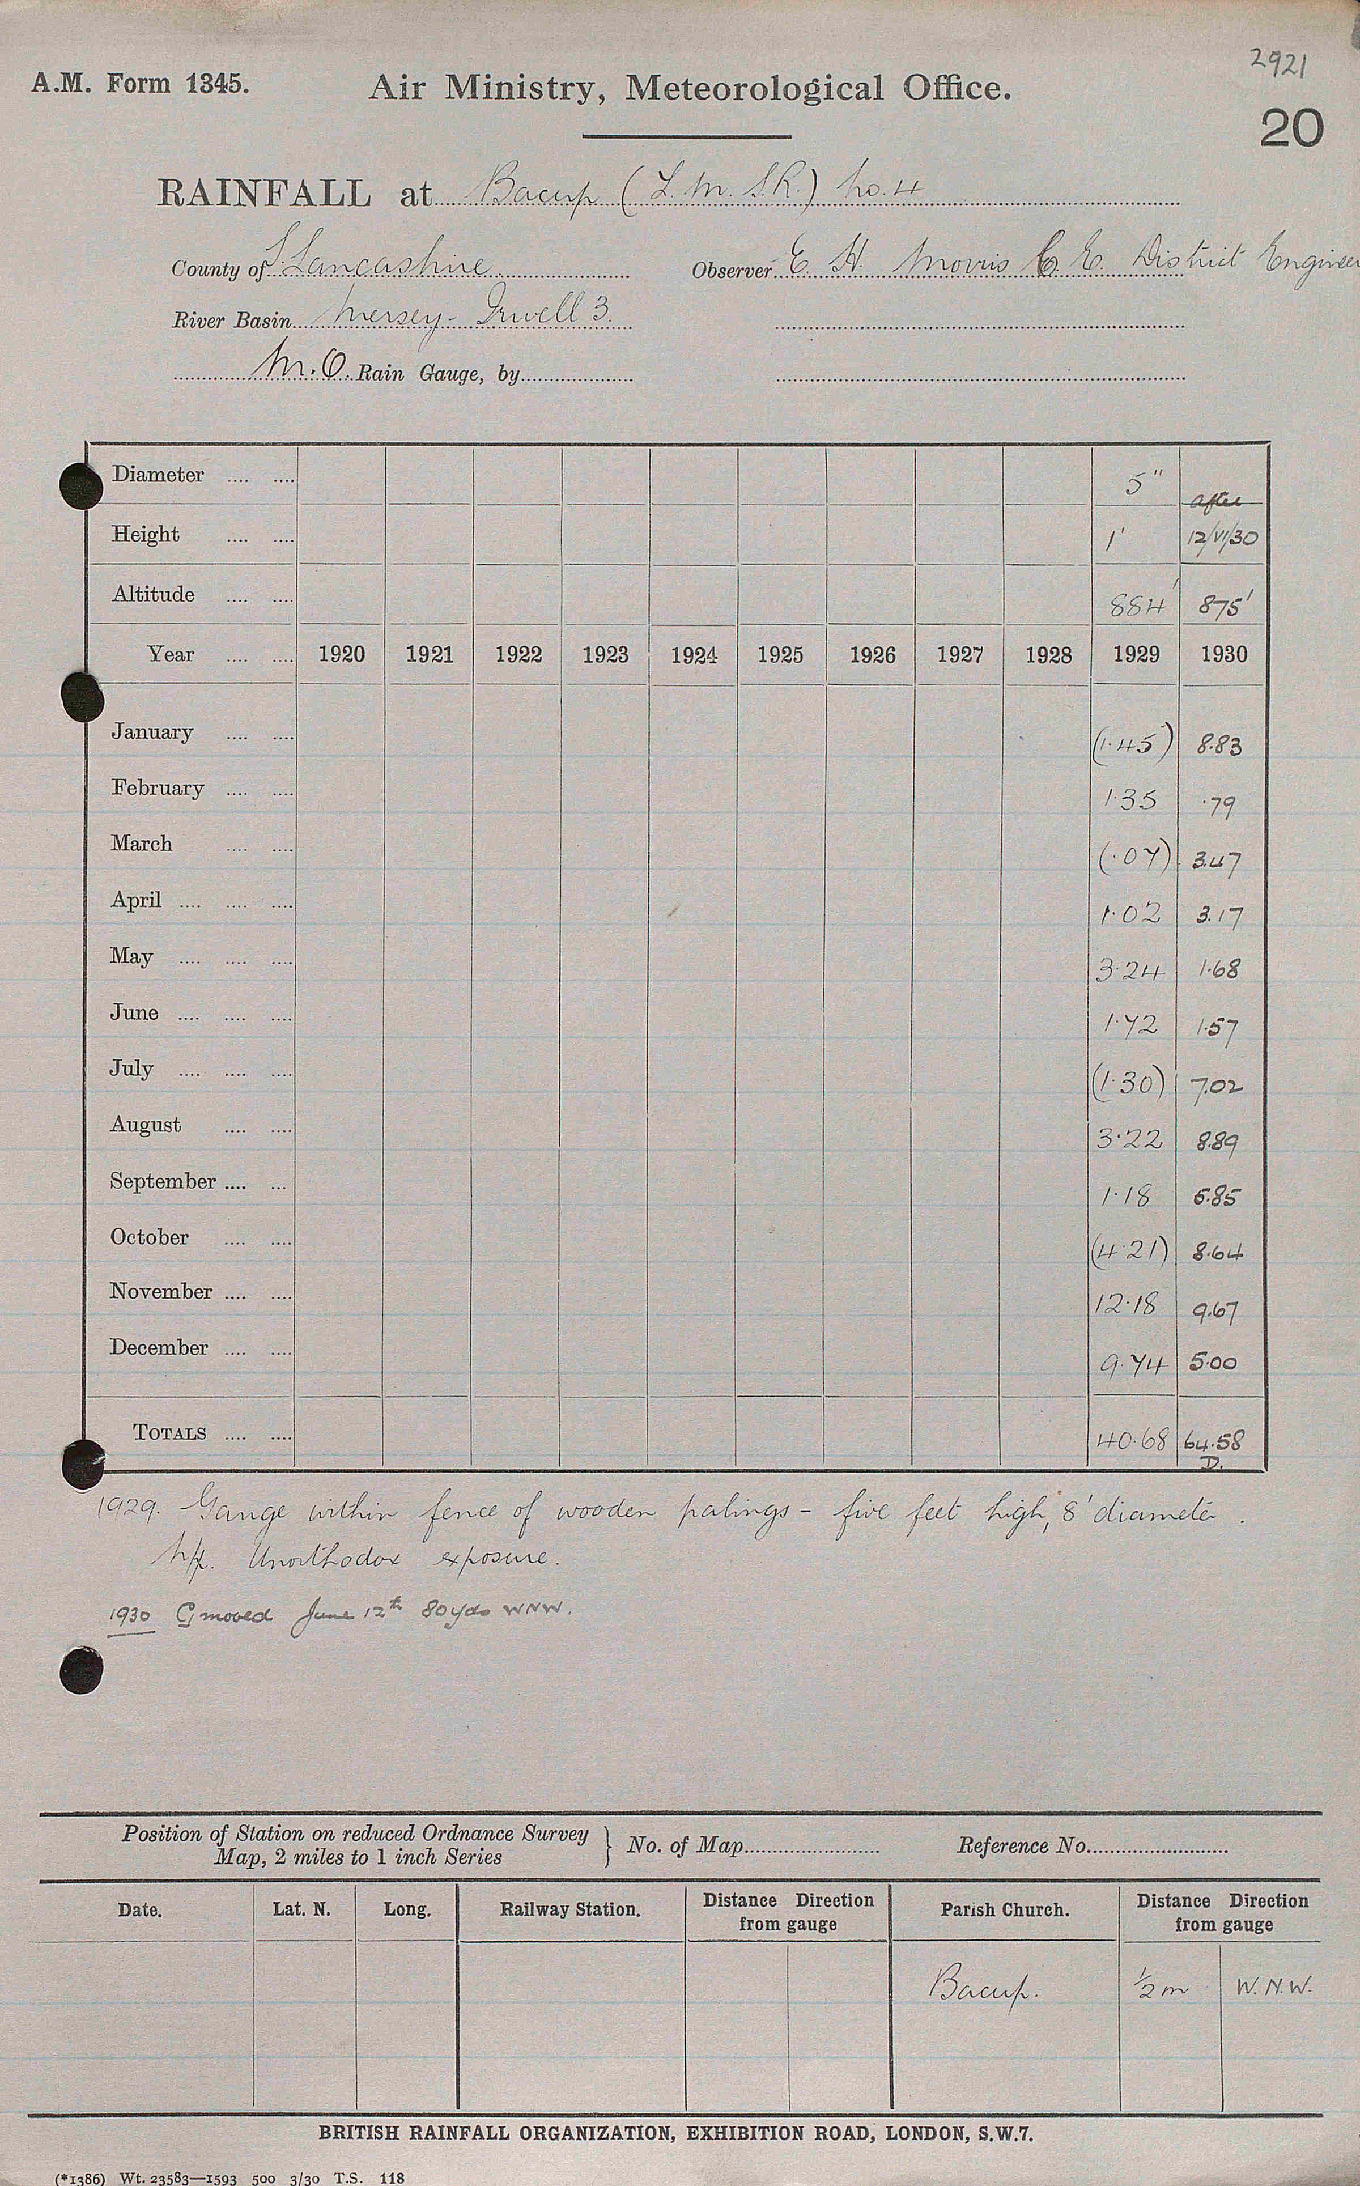 2921
A.M. Form 1345. Air Ministry, Meteorological Office.
20
RAINFALL at Bacup (L.M.S.R.) No. 4
County of S Lancashire Observer E. H. Morris C.E. District Engineer
River Basin Mersey - Irwell 3.
M.O. Rain Gauge, by
Diameter .... .... 5" after
Height .... .... 1' 12/VI/30
Altitude .... .... 884' 875'
Year .... .... 1920 1921 1922 1923 1924 1925 1926 1927 1928 1929 1930
January .... .... (1.45) 8.83
February .... .... 1.35 .79
March .... .... (.07) 3.47
April .... .... .... 1.02 3.17
May .... .... .... 3.24 1.68
June .... .... .... 1.72 1.57
July .... .... .... (1.30) 7.02
August .... .... 3.22 8.89
September .... ... 1.18 5.85
October .... .... (4.21) 8.64
November .... .... 12.18 9.67
December .... .... 9.74 5.00
TOTALS .... .... 40.68 64.58
D.
1929. Gauge within fence of wooden palings - five feet high, 8' diameter.
Unorthodox exposure.
1930 G moved June 12th 80 yds WNW.
Position of Station on reduced Ordnance Survey
Map, 2 miles to 1 inch Series } No. of Map Reference No.
Date. Lat. N. Long. Railway Station. Distance Direction from gauge Parish Church. Distance Direction from gauge
Bacup. ½ m W.N.W.
BRITISH RAINFALL ORGANIZATION, EXHIBITION ROAD, LONDON, S.W.7.
(*1386) Wt. 23583—1593 500 3/30 T.S. 118